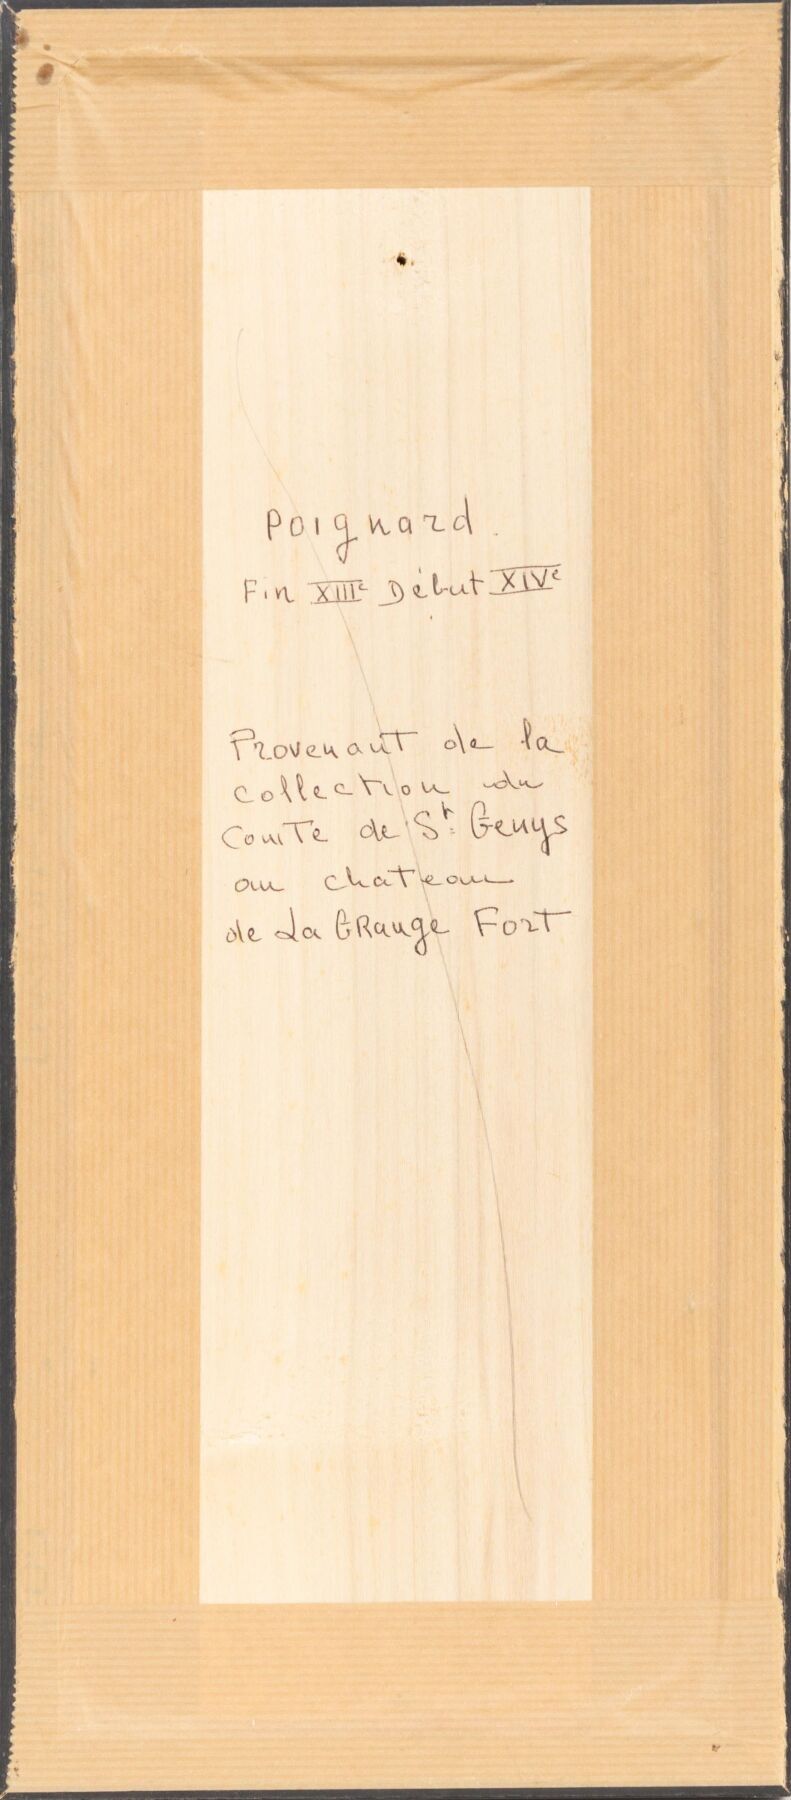 Poignard.
Fin XIIIe Début XIVe
Provenant de la
collection du
Comte de St Genys
au chateau
de La GRange Fort